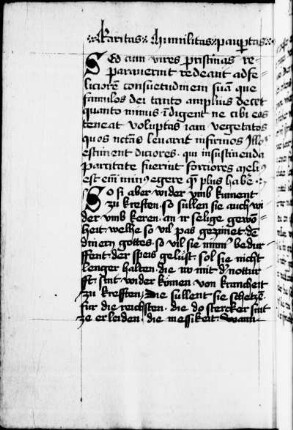 Karitas humilitas paupertas
Sed cum vires pristinas re
paraverint redeant ad fe
liciorem consuetudinem suam que
famulos dei tanto amplius decet
quanto minus indigent ne cibi eos
teneat voluptas iam vegetatos
quos necessitas levarat infirmos Illos
estiment diciores qui in sustinenda
paritate fuerint forciores meli9
est enim min9 egere qm plus habere
So si aber wider umb kument
zu kreften so süllen sie auch wi
der umb keren an ir selige gewon
heit welhe so vil pas gezimet den
dinern gottes so vil sie minner bedur
ffent der speis gelüst sol sie nicht
lenger halten die nw mit d notturf
ft sint wider kömen von kranckeit
zu kreften Die süllent sie schetzen
für die reichsten die do stercker sint
ze erleiden die messikeit Wann